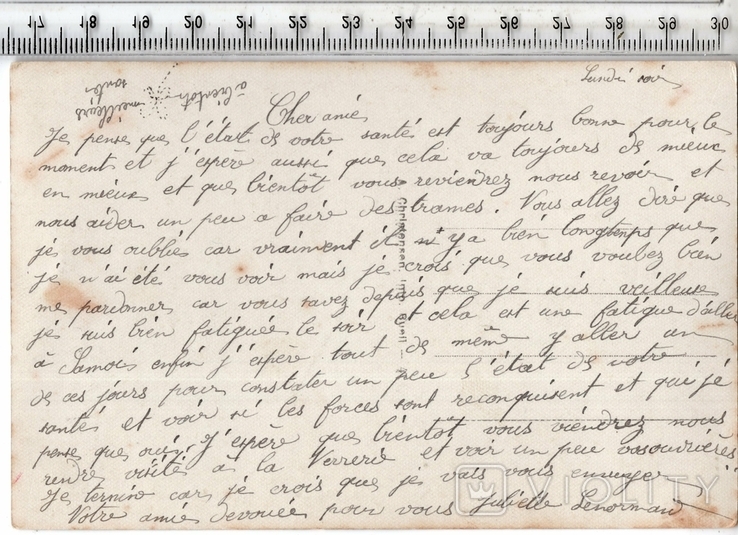 17 18 19 20 21 22 23 24 25 26 27 28 29 30
Lundi soir
à bientôt
meilleure
santé
Cher amie
Je pense que l'état de votre santé est toujours bonne pour le
moment et j'espère aussi que cela va toujours de mieux
en mieux et que bientôt vous reviendrez nous revoir et
nous aider un peu a faire des trames. Vous allez dire que
je vous oublie car vraiment il n'y a bien longtemps que
je n'ai été vous voir mais je crois que vous voulez bien
me pardonner car vous savez depuis que je suis veilleuse
je suis bien fatiguée le soir et cela est une fatigue d'aller
à Samois enfin j'espère tout de même y aller un
de ces jours pour constater un peu l'état de votre
santé et voir si les forces sont reconquisent et qui je
pense que oui, J'espère que bientôt vous viendrez nous
rendre visite à la Verrerie et voir un peu vos ouvrières
Je termine car je crois que je vais vous ennuyer
Votre amie dévouée pour vous Juliette Lenormand
VIOLITY